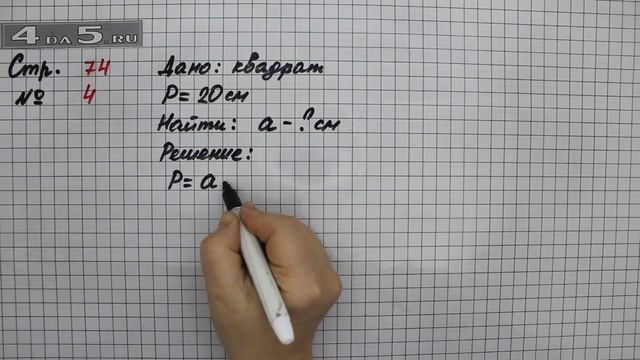 4DA5.RU
Стр. 74
№ 4
Дано: квадрат
P = 20 см
Найти: a - ? см
Решение:
P = a